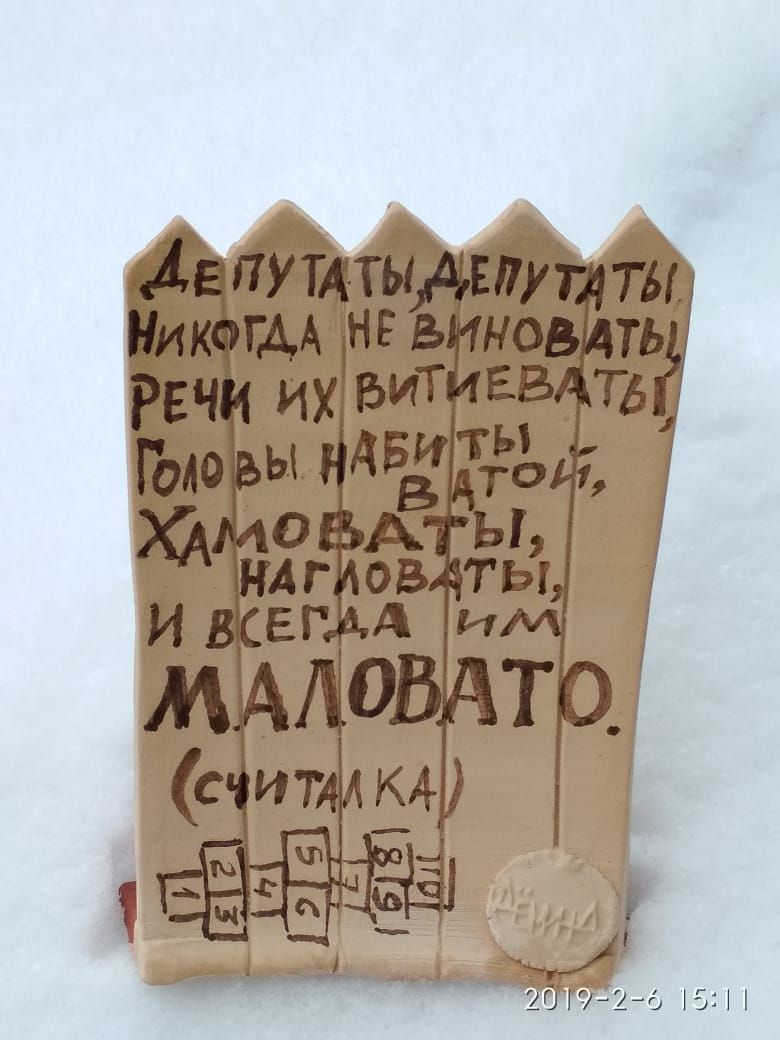 ДЕПУТАТЫ, ДЕПУТАТЫ
НИКОГДА НЕ ВИНОВАТЫ,
РЕЧИ ИХ ВИТИЕВАТЫ,
ГОЛОВЫ НАБИТЫ
ВАТОЙ,
ХАМОВАТЫ,
НАГЛОВАТЫ,
И ВСЕГДА ИМ
МАЛОВАТО.
(СЧИТАЛКА)
1 2 3 4 5 6 7 8 9 10
2019-2-6 15:11